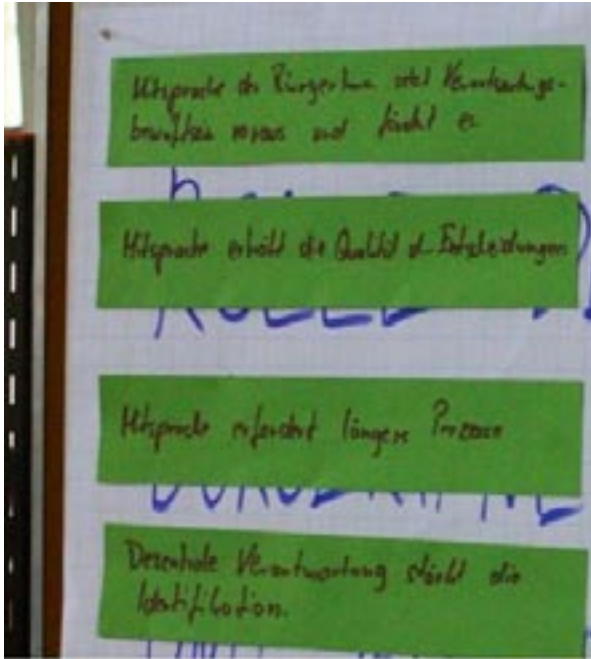 Mitsprache der BürgerInnen setzt Verantwortungs-
bewußtsein voraus und fördert es
Mitsprache erhöht die Qualität d. Entscheidungen
Mitsprache erfordert längere Prozesse
Dezentrale Verantwortung stärkt die
Identifikation.